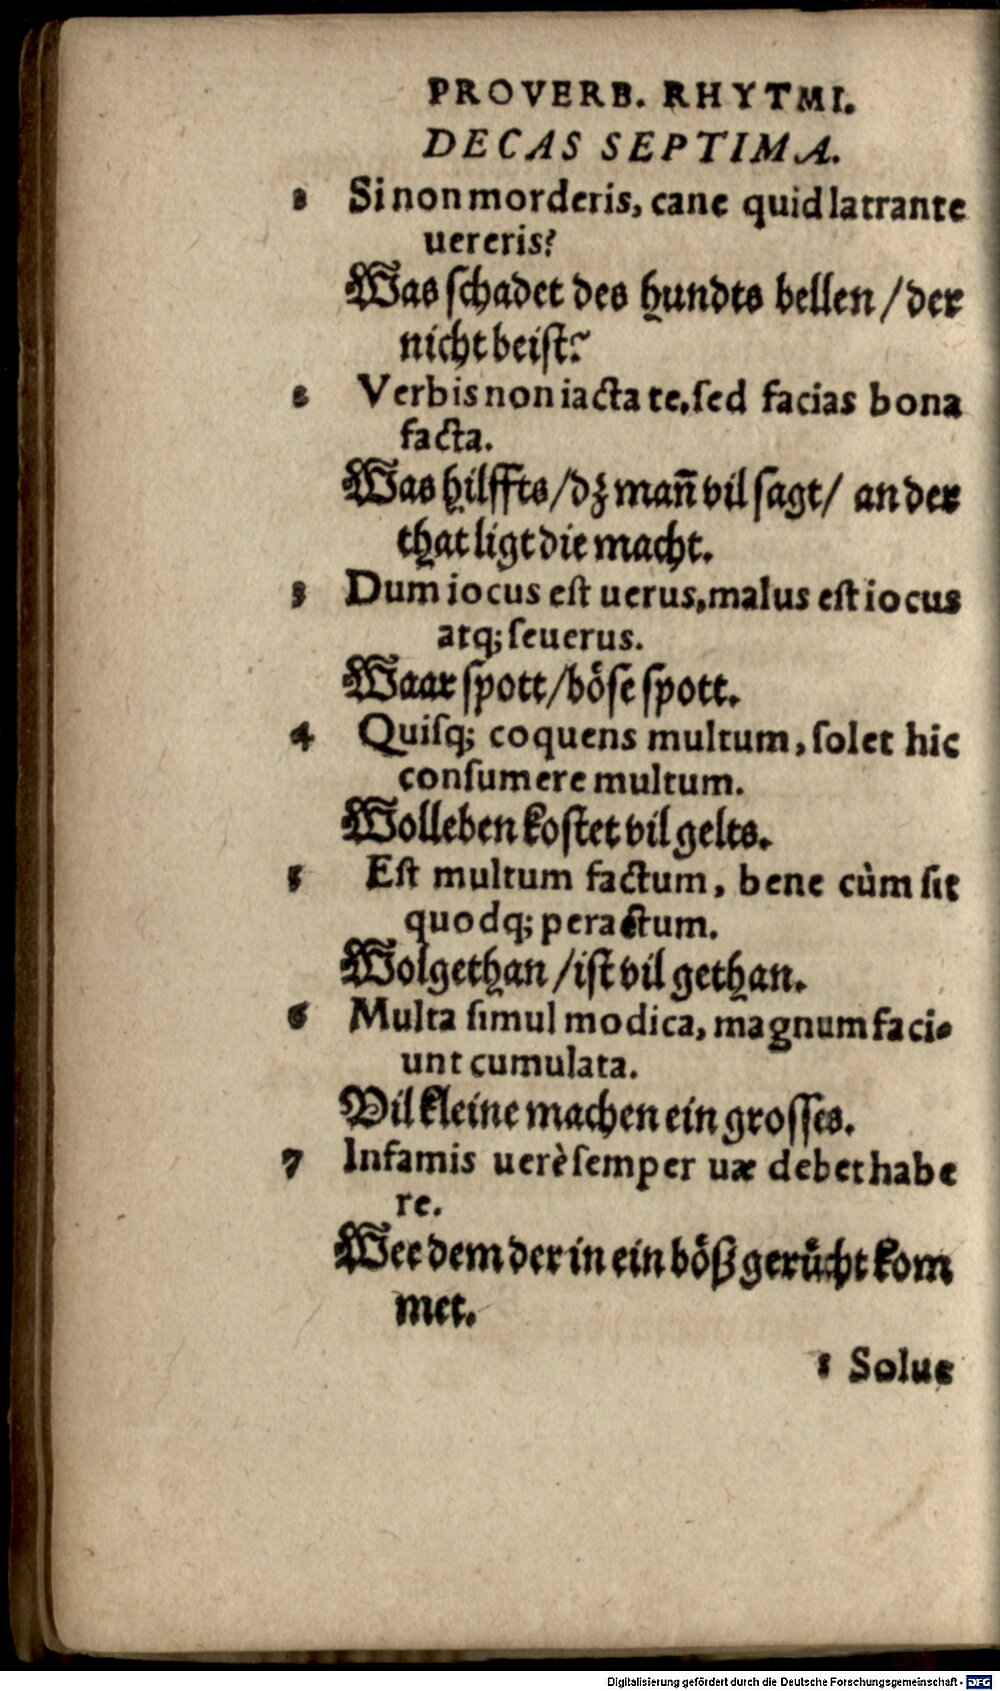 PROVERB. RHYTMI.
DECAS SEPTIMA.
1 Si non morderis, cane quid latrante
uereris?
Was schadet des hundts bellen / der
nicht beist?
2 Verbis non iacta te, sed facias bona
facta.
Was hilffts / dz mañ vil sagt / an der
that ligt die macht.
3 Dum iocus est uerus, malus est iocus
atq; seuerus.
Waar spott / böse spott.
4 Quisq; coquens multum, solet hic
consumere multum.
Wolleben kostet vil gelts.
5 Est multum factum, bene cùm sit
quodq; peractum.
Wolgethan / ist vil gethan.
6 Multa simul modica, magnum faci-
unt cumulata.
Vil kleine machen ein grosses.
7 Infamis uerè semper uæ debet habe
re.
Wee dem der in ein böß gerücht kom
met.
8 Solus
Digitalisierung gefördert durch die Deutsche Forschungsgemeinschaft - DFG